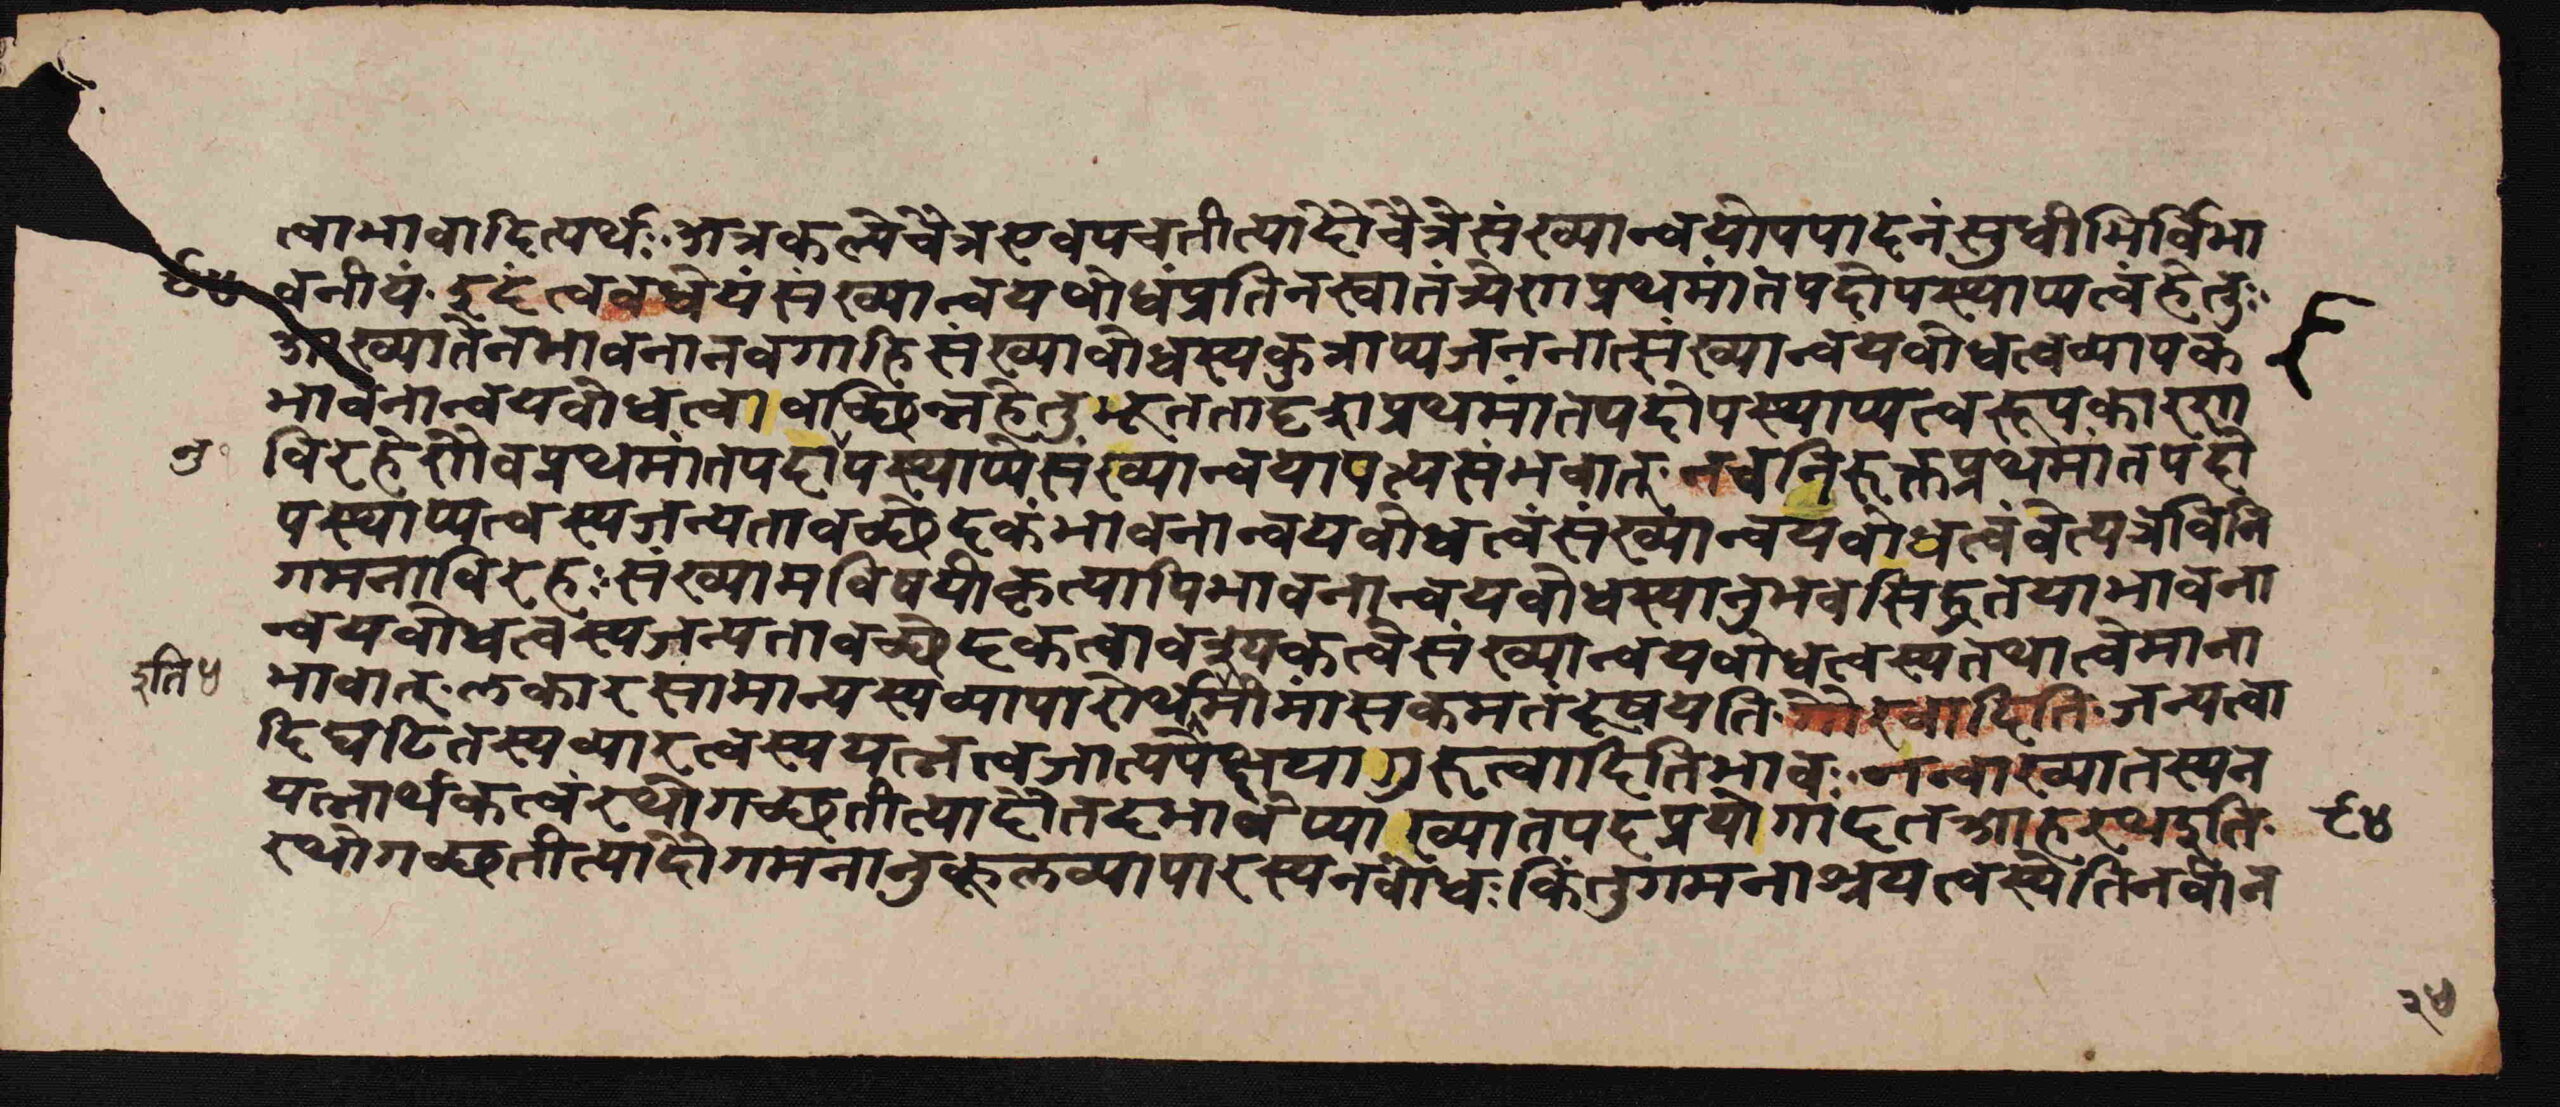 त्वाभावादित्यर्थः अत्रकल्पेचैत्रएवपचतीत्यादौचैत्रेसंख्यान्वयोपपादनंसुधीभिर्विभा
वनीयं इदंत्ववधेयंसंख्यान्वयबोधंप्रतिनस्वातंत्र्येणप्रथमांतपदोपस्थाप्यत्वंहेतुः
आख्यातेनभावनानवगाहिसंख्याबोधस्यकुत्राप्यजननात्संख्यान्वयबोधत्वव्यापक
भावनान्वयबोधत्वावच्छिन्नहेतुभूततादृशप्रथमांतपदोपस्थाप्यत्वरूपकारण
नु
विरहेणैवप्रथमांतपदोपस्थाप्येसंख्यान्वयापत्यसंभवात् नचनिरुक्तप्रथमांतपदो
पस्थाप्यत्वस्यजन्यतावच्छेदकंभावनान्वयबोधत्वंसंख्यान्वयबोधत्वंवेत्यत्रविनि
गमनाविरहः संख्यामविषयीकृत्यापिभावनान्वयबोधस्यानुभवसिद्धतयाभावना
न्वयबोधत्वस्यजन्यतावच्छेदकत्वावश्यकत्वेसंख्यान्वयबोधत्वस्यतथात्वेमाना
इति४
भावात् लकारसामान्यस्यव्यापारोर्थमीमांसकमतंदूषयति गौरवादिति जन्यत्वा
दिघटितस्यव्यारत्वस्ययत्नत्वजात्यपेक्षयागुरुत्वादितिभावः नन्वाख्यातस्यन
यत्नार्थकत्वंरथोगच्छतीत्यादौतदभावेप्याख्यातपदप्रयोगादतआहरथइति
रथोगच्छतीत्यादौगमनानुकूलव्यापारस्यनबोधः किंतुगमनाश्रयत्वस्येतिनवीन
२५